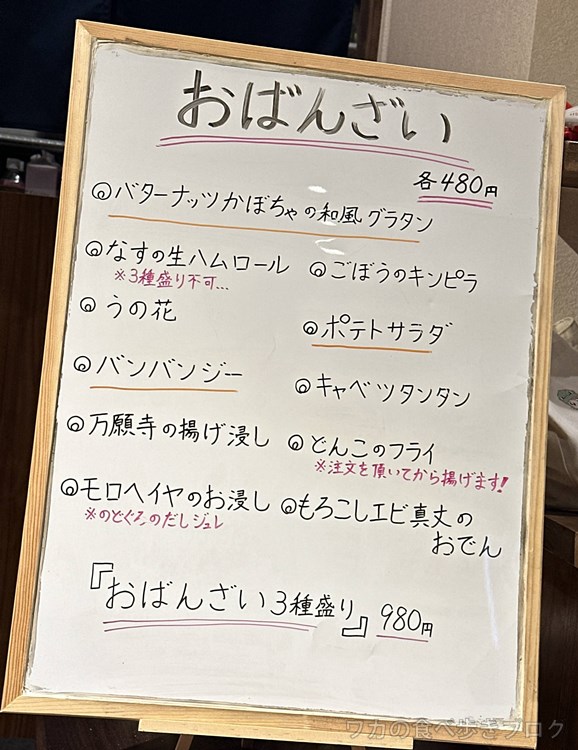 おばんざい
各480円
◎バターナッツかぼちゃの和風グラタン
◎なすの生ハムロール
※3種盛り不可…
◎ごぼうのキンピラ
◎うの花
◎ポテトサラダ
◎バンバンジー
◎キャベツタンタン
◎万願寺の揚げ浸し
◎どんこのフライ
※注文を頂いてから揚げます!
◎モロヘイヤのお浸し
※のどぐろのだしジュレ
◎もろこしエビ真丈の
おでん
『おばんざい3種盛り』980円
ワカの食べ歩きブログ